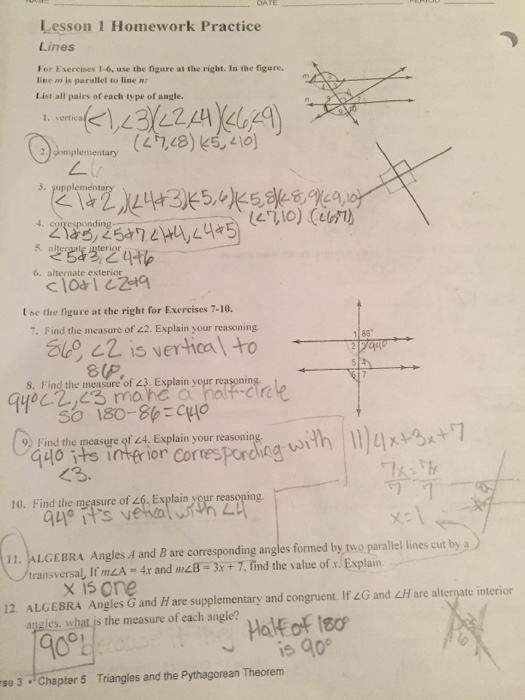 DATE
Lesson 1 Homework Practice
Lines
For Exercises 1-6, use the figure at the right. In the figure,
line m is parallel to line n:
List all pairs of each type of angle.
1. vertical (<1,<3)(<2,<4)(<6,<9)
(<7,<8)(<5,<10)
2. complementary
<
3. supplementary
(<1+2,)(<4+3)(<5,6)(<5,8)(<8,9)(<9,10)
(<7,10)
4. corresponding
<1+5, <5+7 <1+4, <4+5
5. alternate interior
<5+3, <4+6
6. alternate exterior
<10+1 <2+9
m
n
Use the figure at the right for Exercises 7-10.
7. Find the measure of ∠2. Explain your reasoning.
86°, <2 is vertical to
86°.
8. Find the measure of ∠3. Explain your reasoning.
94° <2, <3 make a half-circle
so 180-86=94°
1 86°
2 3 94°
5 4
6 7
9. Find the measure of ∠4. Explain your reasoning.
94° its interior corresponding with
<3.
10. Find the measure of ∠6. Explain your reasoning.
94° it's vetical with <4
11) 4x+3x+7
7x=7x
7 7
x=1
11. ALGEBRA Angles A and B are corresponding angles formed by two parallel lines cut by a
transversal. If m∠A = 4x and m∠B = 3x + 7, find the value of x. Explain.
x is one
12. ALGEBRA Angles G and H are supplementary and congruent. If ∠G and ∠H are alternate interior
angles, what is the measure of each angle?
90°!
Half of 180°
is 90°
se 3 • Chapter 5 Triangles and the Pythagorean Theorem